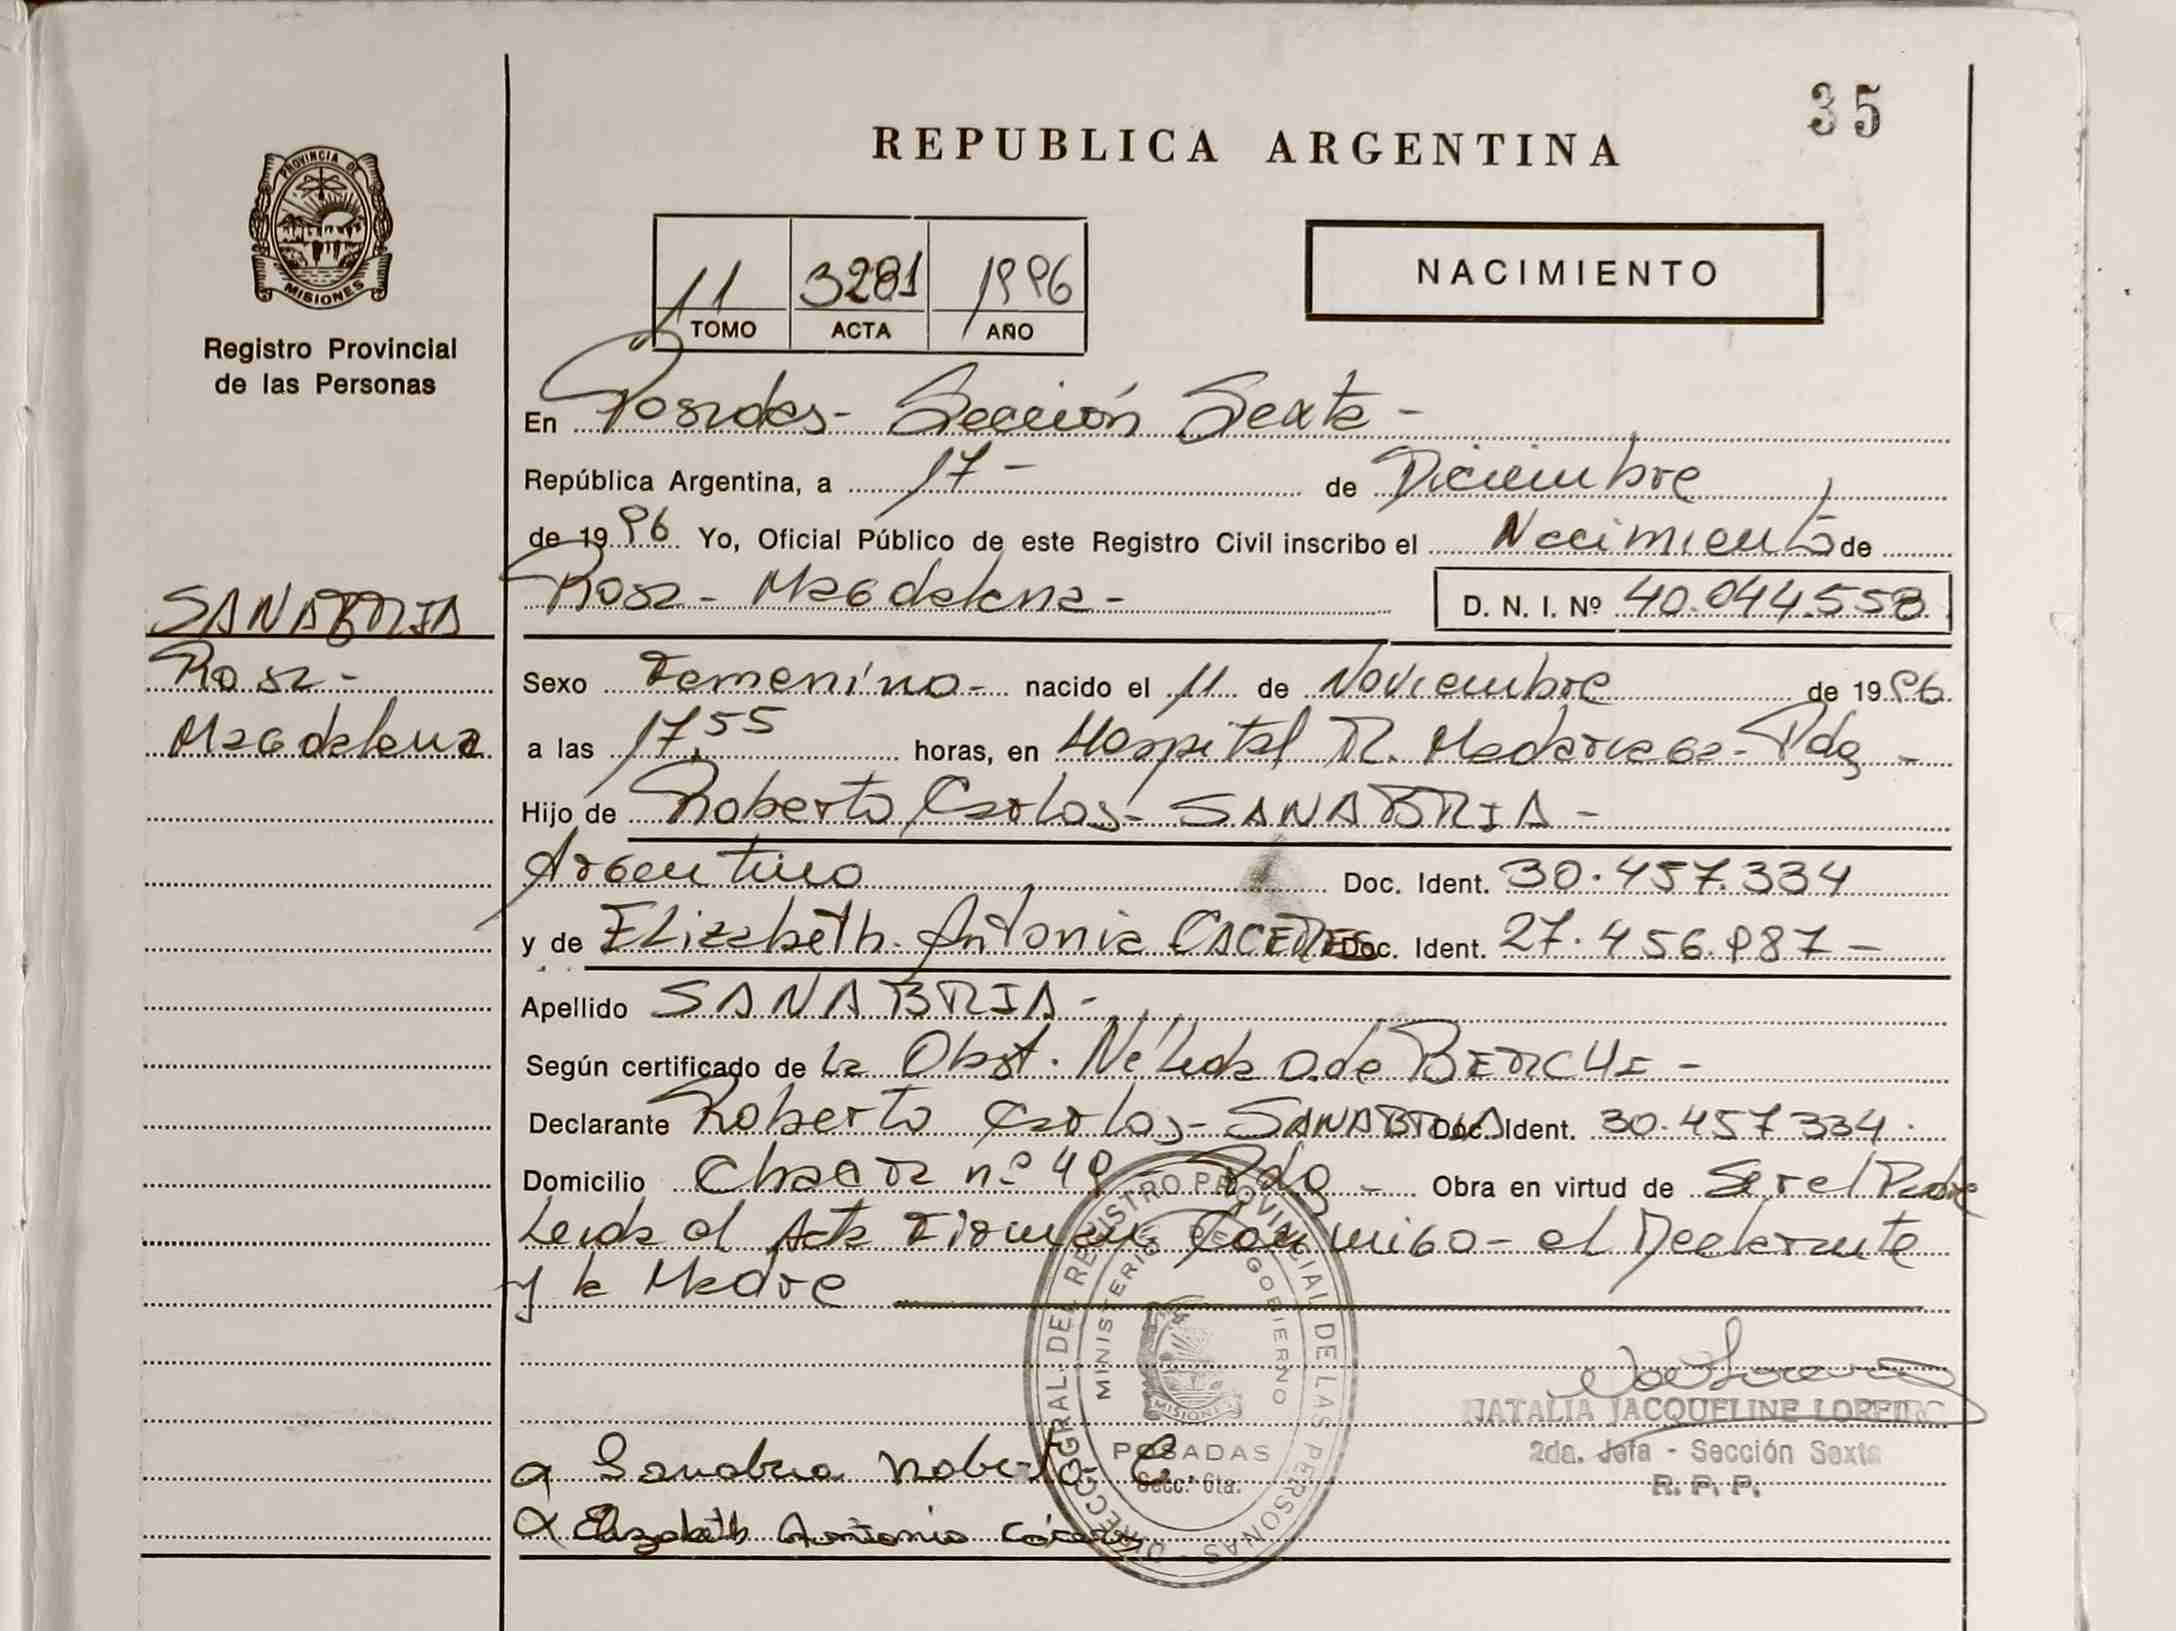 35
REPUBLICA ARGENTINA
PROVINCIA DE
MISIONES
Registro Provincial
de las Personas
11 3281 1996
TOMO ACTA AÑO
NACIMIENTO
En Posadas- Sección Sexta -
República Argentina, a 17 - de Diciembre
de 1996 Yo, Oficial Público de este Registro Civil inscribo el Nacimiento de
Rosa - Magdalena - D. N. I. Nº 40.044.558
SANABRIA
Rosa -
Magdalena
Sexo Femenino - nacido el 11 de Noviembre de 1996
a las 17,55 horas, en Hospital R. Madariaga - Pdas -
Hijo de Roberto Carlos - SANABRIA -
Argentino Doc. Ident. 30.457.334
y de Elizabeth Antonia CACERES Doc. Ident. 27.456.987 -
Apellido SANABRIA -
Según certificado de la Obst. Nélida D. de BERCHE -
Declarante Roberto Carlos - SANABRIA Doc. Ident. 30.457 334.
Domicilio Chacra nº 49 - Pdas - Obra en virtud de Ser el Padre
Leida el Acta Firman Conmigo - el Declarante
y la Madre
DIRECC. GRAL. DEL REGISTRO PROVINCIAL DE LAS PERSONAS
MINISTERIO DE GOBIERNO
MISIONES
POSADAS
Secc. 6ta.
NATALIA JACQUELINE
2da. Jefa - Sección Sexta
R. P. P.
Sanabria Roberto C.
Elizabeth Antonia Cáceres